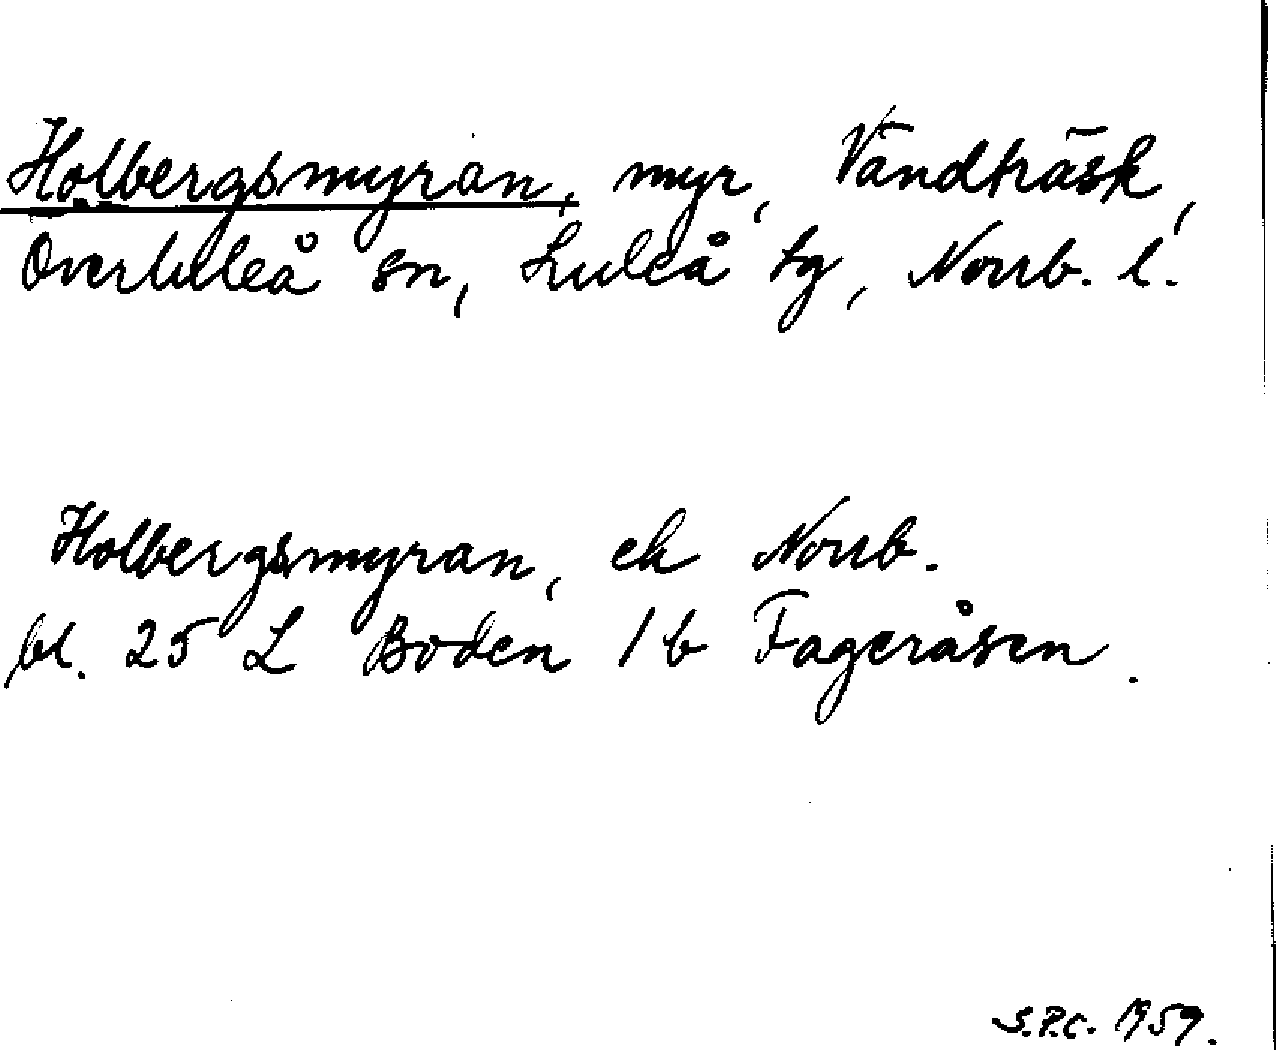 Holbergsmyran, myr, Vändträsk,
Överluleå sn, Luleå tg, Norrb. l.
Holbergsmyran, ek Norrb.
bl. 25 L Boden 1b Fageråsen.
S.P.C. 1959.